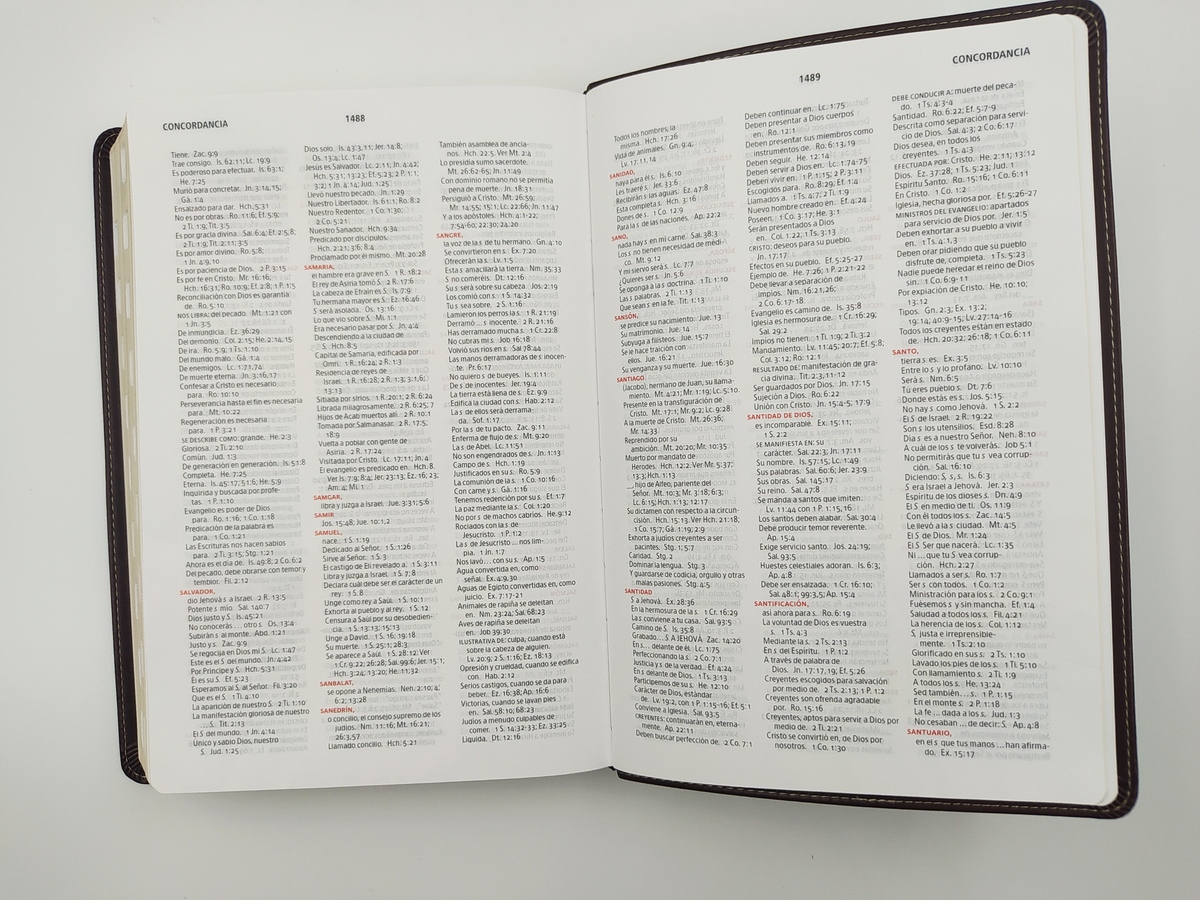 CONCORDANCIA
1488
Tiene. Zac. 9:9
Es poderoso para efectuar. Is. 63:1;
He. 7:25
Trae consigo. Is. 62:11; Lc. 19:9
Murió para concretar. Jn. 3:14,15;
Gá. 1:4
Ensalzado para dar. Hch. 5:31
No es por obras. Ro. 11:6; Ef. 2:9;
2 Ti. 1:9; Tit. 3:5
Es por gracia divina. Sal. 6:4; Ef. 2:5,8;
2 Ti. 1:9; Tit. 2:11; 3:5
Es por amor divino. Ro. 5:8;
1 Jn. 4:9,10
Es por paciencia de Dios. 2 P. 3:15
Es por fe en Cristo. Mr. 16:16;
Hch. 16:31; Ro. 10:9; Ef. 2:8; 1 P. 1:5
Reconciliación con Dios es garantía
de. Ro. 5:10
NOS LIBRA: del pecado. Mt. 1:21 con
1 Jn. 3:5
De inmundicia. Ez. 36:29
Del demonio. Col. 2:15; He. 2:14,15
De ira. Ro. 5:9; 1 Ts. 1:10
Del mundo malo. Gá. 1:4
De enemigos. Lc. 1:71,74
De muerte eterna. Jn. 3:16,17
Confesar a Cristo es necesario
para. Ro. 10:10
Perseverancia hasta el fin es necesaria
para. Mt. 10:22
Regeneración es necesaria
para. 1 P. 3:21
SE DESCRIBE COMO: grande. He. 2:3
Gloriosa. 2 Ti. 2:10
Común. Jud. 1:3
De generación en generación. Is. 51:8
Completa. He. 7:25
Eterna. Is. 45:17; 51:6; He. 5:9
Inquirida y buscada por profe-
tas. 1 P. 1:10
Evangelio es poder de Dios
para. Ro. 1:16; 1 Co. 1:18
Predicación de la palabra es
para. 1 Co. 1:21
Las Escrituras nos hacen sabios
para. 2 Ti. 3:15; Stg. 1:21
Ahora es el día de. Is. 49:8; 2 Co. 6:2
Del pecado, debe obrarse con temor y
temblor. Fil. 2:12
SALVADOR,
dio Jehová s a Israel. 2 R. 13:5
Potente s mío. Sal. 140:7
Dios justo y S. Is. 45:21
No conocerás . . . otro s. Os. 13:4
Subirán s al monte. Abd. 1:21
Justo y s. Zac. 9:9
Se regocija en Dios mi S. Lc. 1:47
Este es el S del mundo. Jn. 4:42
Por Príncipe y S. Hch. 5:31
El es su S. Ef. 5:23
Esperamos al S, al Señor. Fil. 3:20
Que es el S. 1 Ti. 4:10
La aparición de nuestro S. 2 Ti. 1:10
La manifestación gloriosa de nuestro
. . . S. Tit. 2:13
El S del mundo. 1 Jn. 4:14
Único y sabio Dios, nuestro
S. Jud. 1:25
Dios solo. Is. 43:3,11; Jer. 14:8;
Os. 13:4; Lc. 1:47
Jesús es Salvador. Lc. 2:11; Jn. 4:42;
Hch. 5:31; 13:23; Ef. 5:23; 2 P. 1:1;
3:2; 1 Jn. 4:14; Jud. 1:25
Llevó nuestro pecado. Jn. 1:29
Nuestro Libertador. Is. 61:1; Ro. 8:2
Nuestro Redentor. 1 Co. 1:30;
2 Co. 5:21
Nuestro Sanador. Hch. 9:34
Predicado por discípulos.
Hch. 2:21; 3:6; 8:4
Proclamado por él mismo. Mt. 20:28
SAMARIA,
el hambre era grave en S. 1 R. 18:2
El rey de Asiria tomó S. 2 R. 17:6
La cabeza de Efraín es S. Is. 7:9
Tu hermana mayor es S. Ez. 16:46
S será asolada. Os. 13:16
Lo que vio sobre S. Mi. 1:1
Era necesario pasar por S. Jn. 4:4
Descendiendo a la ciudad de
S. Hch. 8:5
Capital de Samaria, edificada por
Omri. 1 R. 16:24; 2 R. 1:3
Residencia de reyes de
Israel. 1 R. 16:28; 2 R. 1:3; 3:1,6;
13:13
Sitiada por sirios. 1 R. 20:1; 2 R. 6:24
Librada milagrosamente. 2 R. 6:25,7
Hijos de Acab muertos allí. 2 R. 10:1
Tomada por Salmanasar. 2 R. 17:5;
18:9
Vuelta a poblar con gente de
Asiria. 2 R. 17:24
Visitada por Cristo. Lc. 17:11; Jn. 4
El evangelio es predicado en. Hch. 8.
Ver Is. 7:9; 8:4; Jer. 23:13; Ez. 16; 23;
Am. 4; Mi. 1
SAMGAR,
libra y juzga a Israel. Jue. 3:31; 5:6
SAMIR
Jos. 15:48; Jue. 10:1,2
SAMUEL,
nace. 1 S. 1:19
Dedicado al Señor. 1 S. 1:26
Sirve al Señor. 1 S. 3
El castigo de Elí revelado a. 1 S. 3:11
Libra y juzga a Israel. 1 S. 7; 8
Declara cuál debe ser el carácter de un
rey. 1 S. 8
Unge como rey a Saúl. 1 S. 10:1
Exhorta al pueblo y al rey. 1 S. 12
Censura a Saúl por su desobedien-
cia. 1 S. 13:13; 15:13
Unge a David. 1 S. 16; 19:18
Su muerte. 1 S. 25:1; 28:3
Se aparece a Saúl. 1 S. 28:12. Ver
1 Cr. 9:22; 26:28; Sal. 99:6; Jer. 15:1;
Hch. 3:24; 13:20; He. 11:32
SANBALAT,
se opone a Nehemías. Neh. 2:10; 4;
6:2; 13:28
SANEDRÍN,
o concilio, el consejo supremo de los
judíos. Mr. 11:16; Mt. 16:21;
26:3,57
Llamado concilio. Hch. 5:21
También asamblea de ancia-
nos. Hch. 22:5. Ver Mt. 2:4
Lo presidía sumo sacerdote.
Mt. 26:62-65; Jn. 11:49
Con dominio romano no se permitía
pena de muerte. Jn. 18:31
Persiguió a Cristo. Mt. 26:59;
Mr. 14:55; 15:1; Lc. 22:66; Jn. 11:47
Y a los apóstoles. Hch. 4:1-22;
7:54-60; 22:30; 24:20
SANGRE,
la voz de la s de tu hermano. Gn. 4:10
Se convirtieron en s. Ex. 7:20
Ofrecerán la s. Lv. 1:5
Esta s amancillará la tierra. Nm. 35:33
S no comeréis. Dt. 12:16
Su s será sobre su cabeza. Jos. 2:19
Los comió con s. 1 S. 14:32
Tu s sea sobre. 2 S. 1:16
Lamieron los perros la s. 1 R. 21:19
Derramó . . . s inocente. 2 R. 21:16
Has derramado mucha s. 1 Cr. 22:8
No cubras mi s. Job 16:18
Volvió sus ríos en s. Sal. 78:44
Las manos derramadoras de s inocen-
te. Pr. 6:17
No quiero s de bueyes. Is. 1:11
De s de inocentes. Jer. 19:4
La tierra está llena de s. Ez. 9:9
Edifica la ciudad con s. Hab. 2:12
La s de ellos será derrama-
da. Sof. 1:17
Por la s de tu pacto. Zac. 9:11
Enferma de flujo de s. Mt. 9:20
La s de Abel. Lc. 11:51
No son engendrados de s. Jn. 1:13
Campo de s. Hch. 1:19
Justificados en su s. Ro. 5:9
La comunión de la s. 1 Co. 10:16
Con carne y s. Gá. 1:16
Tenemos redención por su s. Ef. 1:7
La paz mediante la s. Col. 1:20
No por s de machos cabríos. He. 9:12
Rociados con la s de
Jesucristo. 1 P. 1:2
La s de Jesucristo . . . nos lim-
pia. 1 Jn. 1:7
Nos lavó . . . con su s. Ap. 1:5
Agua convertida en, como
señal. Ex. 4:9,30
Aguas de Egipto convertidas en, como
juicio. Ex. 7:17-21
Animales de rapiña se deleitan
en. Nm. 23:24; Sal. 68:23
Aves de rapiña se deleitan
en. Job 39:30
ILUSTRATIVA DE: culpa, cuando está
sobre la cabeza de alguien.
Lv. 20:9; 2 S. 1:16; Ez. 18:13
Opresión y crueldad, cuando se edifica
con. Hab. 2:12
Serios castigos, cuando se da para
beber. Ez. 16:38; Ap. 16:6
Victorias, cuando se lavan pies
en. Sal. 58:10; 68:23
Judíos a menudo culpables de
comer. 1 S. 14:32-33; Ez. 33:25
Líquida. Dt. 12:16
1489
CONCORDANCIA
Todos los hombres, la
misma. Hch. 17:26
Vida de animales. Gn. 9:4;
Lv. 17:11,14
SANIDAD,
haya para él s. Is. 6:10
Les traeré s. Jer. 33:6
Recibirán s las aguas. Ez. 47:8
Esta completa s. Hch. 3:16
Dones de s. 1 Co. 12:9
Para la s de las naciones. Ap. 22:2
SANO,
nada hay s en mi carne. Sal. 38:3
Los s no tienen necesidad de médi-
co. Mt. 9:12
Y mi siervo será s. Lc. 7:7
¿Quieres ser s. Jn. 5:6
Se oponga a la s doctrina. 1 Ti. 1:10
Las s palabras. 2 Ti. 1:13
Que sean s en la fe. Tit. 1:13
SANSÓN,
se predice su nacimiento. Jue. 13
Su matrimonio. Jue. 14
Subyuga a filisteos. Jue. 15:7
Se le hace traición con
ellos. Jue. 16:21
Su venganza y su muerte. Jue. 16:30
SANTIAGO
(Jacobo), hermano de Juan, su llama-
miento. Mt. 4:21; Mr. 1:19; Lc. 5:10
Presente en la transfiguración de
Cristo. Mt. 17:1; Mr. 9:2; Lc. 9:28
A la muerte de Cristo. Mt. 26:36;
Mr. 14:33
Reprendido por su
ambición. Mt. 20:20; Mr. 10:35
Muerto por mandato de
Herodes. Hch. 12:2. Ver Mr. 5:37;
13:3; Hch. 1:13
__, hijo de Alfeo, pariente del
Señor. Mt. 10:3; Mr. 3:18; 6:3;
Lc. 6:15; Hch. 1:13; 12:17
Su dictamen con respecto a la circun-
cisión. Hch. 15:13. Ver Hch. 21:18;
1 Co. 15:7; Gá. 1:19; 2:9
Exhorta a judíos creyentes a ser
pacientes. Stg. 1; 5:7
Caridad. Stg. 2
Dominar la lengua. Stg. 3
Y guardarse de codicia, orgullo y otras
malas pasiones. Stg. 4:5
SANTIDAD
S a Jehová. Ex. 28:36
En la hermosura de la s. 1 Cr. 16:29
La s conviene a tu casa. Sal. 93:5
Camino de S. Is. 35:8
Grabado. . . S A JEHOVÁ Zac. 14:20
En s . . . delante de él. Lc. 1:75
Perfeccionando la s. 2 Co. 7:1
Justicia y s de la verdad. Ef. 4:24
En s delante de Dios. 1 Ts. 3:13
Participemos de su s. He. 12:10
Carácter de Dios, estándar
de. Lv. 19:2, con 1 P. 1:15-16; Ef. 5:1
Conviene a Iglesia. Sal. 93:5
CREYENTES: continuarán en, eterna-
mente. Ap. 22:11
Deben buscar perfección de. 2 Co. 7:1
Deben continuar en. Lc. 1:75
Deben presentar a Dios cuerpos
en. Ro. 12:1
Deben presentar sus miembros como
instrumentos de. Ro. 6:13,19
Deben seguir. He. 12:14
Deben servir a Dios en. Lc. 1:74-75
Deben vivir en. 1 P. 1:15; 2 P. 3:11
Escogidos para. Ro. 8:29; Ef. 1:4
Llamados a. 1 Ts. 4:7; 2 Ti. 1:9
Nuevo hombre creado en. Ef. 4:24
Poseen. 1 Co. 3:17; He. 3:1
Serán presentados a Dios
en. Col. 1:22; 1 Ts. 3:13
CRISTO: deseos para su pueblo.
Jn. 17:17
Efectos en su pueblo. Ef. 5:25-27
Ejemplo de. He. 7:26; 1 P. 2:21-22
Debe llevar a separación de
impíos. Nm. 16:21,26;
2 Co. 6:17-18
Evangelio es camino de. Is. 35:8
Iglesia es hermosura de. 1 Cr. 16:29;
Sal. 29:2
Impíos no tienen. 1 Ti. 1:9; 2 Ti. 3:2
Mandamiento. Lv. 11:45; 20:7; Ef. 5:8;
Col. 3:12; Ro. 12:1
RESULTADO DE: manifestación de gra-
cia divina. Tit. 2:3,11-12
Ser guardados por Dios. Jn. 17:15
Sujeción a Dios. Ro. 6:22
Unión con Cristo. Jn. 15:4-5; 17:9
SANTIDAD DE DIOS,
es incomparable. Ex. 15:11;
1 S. 2:2
SE MANIFIESTA EN: SU
carácter. Sal. 22:3; Jn. 17:11
Su nombre. Is. 57:15; Lc. 1:49
Sus palabras. Sal. 60:6; Jer. 23:9
Sus obras. Sal. 145:17
Su reino. Sal. 47:8
Se manda a santos que imiten.
Lv. 11:44 con 1 P. 1:15,16
Los santos deben alabar. Sal. 30:4
Debe producir temor reverente.
Ap. 15:4
Exige servicio santo. Jos. 24:19;
Sal. 93:5
Huestes celestiales adoran. Is. 6:3;
Ap. 4:8
Debe ser ensalzada. 1 Cr. 16:10;
Sal. 48:1; 99:3,5; Ap. 15:4
SANTIFICACIÓN,
así ahora para s. Ro. 6:19
La voluntad de Dios es vuestra
s. 1 Ts. 4:3
Mediante la s. 2 Ts. 2:13
En s del Espíritu. 1 P. 1:2
A través de palabra de
Dios. Jn. 17:17,19; Ef. 5:26
Creyentes escogidos para salvación
por medio de. 2 Ts. 2:13; 1 P. 1:2
Creyentes son ofrenda agradable
por. Ro. 15:16
Creyentes, aptos para servir a Dios por
medio de. 2 Ti. 2:21
Cristo se convirtió en, de Dios por
nosotros. 1 Co. 1:30
DEBE CONDUCIR A: muerte del peca-
do. 1 Ts. 4:3-4
Santidad. Ro. 6:22; Ef. 5:7-9
Descrita como separación para servi-
cio de Dios. Sal. 4:3; 2 Co. 6:17
Dios desea, en todos los
creyentes. 1 Ts. 4:3
EFECTUADA POR: Cristo. He. 2:11; 13:12
Dios. Ez. 37:28; 1 Ts. 5:23; Jud. 1
Espíritu Santo. Ro. 15:16; 1 Co. 6:11
En Cristo. 1 Co. 1:2
Iglesia, hecha gloriosa por. Ef. 5:26-27
MINISTROS DEL EVANGELIO: apartados
para servicio de Dios por. Jer. 1:5
Deben exhortar a su pueblo a vivir
en. 1 Ts. 4:1,3
Deben orar pidiendo que su pueblo
disfrute de, completa. 1 Ts. 5:23
Nadie puede heredar el reino de Dios
sin. 1 Co. 6:9-11
Por expiación de Cristo. He. 10:10;
13:12
Tipos. Gn. 2:3; Ex. 13:2;
19:14; 40:9-15; Lv. 27:14-16
Todos los creyentes están en estado
de. Hch. 20:32; 26:18; 1 Co. 6:11
SANTO,
tierra s es. Ex. 3:5
Entre lo s y lo profano. Lv. 10:10
Será s. Nm. 6:5
Tú eres pueblo s. Dt. 7:6
Donde estás es s. Jos. 5:15
No hay s como Jehová. 1 S. 2:2
El S de Israel. 2 R. 19:22
Son s los utensilios. Esd. 8:28
Día s es a nuestro Señor. Neh. 8:10
A cuál de los s te volverás. Job 5:1
No permitirás que tu s vea corrup-
ción. Sal. 16:10
Diciendo: S, s, s. Is. 6:3
S era Israel a Jehová. Jer. 2:3
Espíritu de los dioses s. Dn. 4:9
El S en medio de ti. Os. 11:9
Con él todos los s. Zac. 14:5
Le llevó a la s ciudad. Mt. 4:5
El S de Dios. Mr. 1:24
El S Ser que nacerá. Lc. 1:35
Ni . . . que tu S vea corrup-
ción. Hch. 2:27
Llamados a ser s. Ro. 1:7
Ser s con todos. 1 Co. 1:2
Ministración para los s. 2 Co. 9:1
Fuésemos s y sin mancha. Ef. 1:4
Saludad a todos los s. Fil. 4:21
La herencia de los s. Col. 1:12
S, justa e irreprensible-
mente. 1 Ts. 2:10
Glorificado en sus s. 2 Ts. 1:10
Lavado los pies de los s. 1 Ti. 5:10
Con llamamiento s. 2 Ti. 1:9
A todos los s. He. 13:24
Sed también . . . s. 1 P. 1:15
En el monte s. 2 P. 1:18
La fe . . . dada a los s. Jud. 1:3
No cesaban . . . de decir: S. Ap. 4:8
SANTUARIO,
en el s que tus manos . . . han afirma-
do. Ex. 15:17